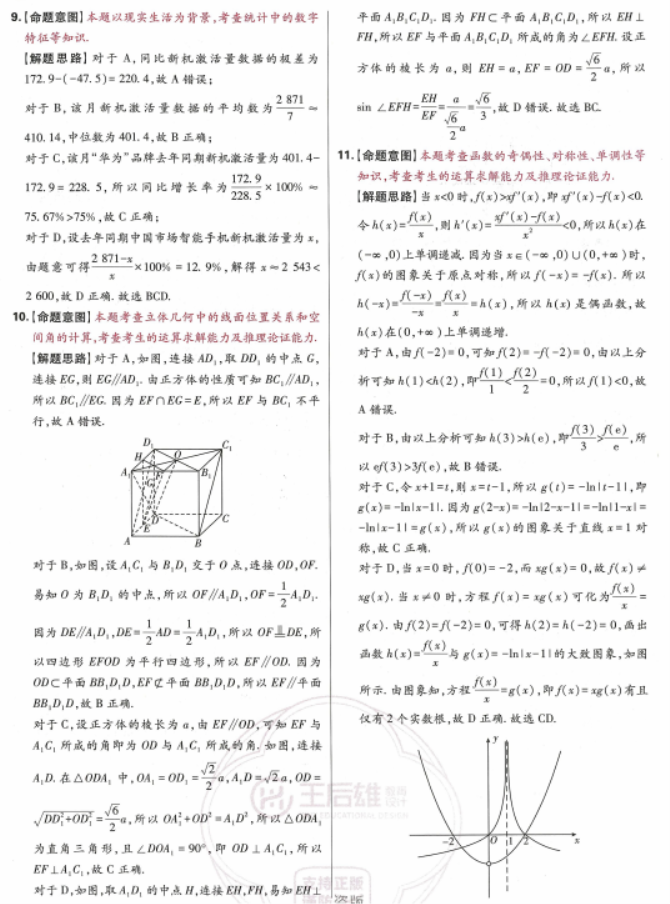 9.【命题意图】本题以现实生活为背景,考查统计中的数字
特征等知识.
【解题思路】对于 A,同比新机激活量数据的极差为
172.9-(-47.5)=220.4,故 A 错误;
对于 B,该月新机激活量数据的平均数为 2 871/7 ≈
410.14,中位数为 401.4,故 B 正确;
对于 C,该月“华为”品牌去年同期新机激活量为 401.4-
172.9=228.5,所以同比增长率为 172.9/228.5 ×100% ≈
75.67%>75%,故 C 正确;
对于 D,设去年同期中国市场智能手机新机激活量为 x,
由题意可得 (2 871-x)/x ×100% =12.9%,解得 x≈2 543<
2 600,故 D 正确.故选 BCD.
10.【命题意图】本题考查立体几何中的线面位置关系和空
间角的计算,考查考生的运算求解能力及推理论证能力.
【解题思路】对于 A,如图,连接 AD₁,取 DD₁ 的中点 G,
连接 EG,则 EG∥AD₁.由正方体的性质可知 BC₁∥AD₁,
所以 BC₁∥EG.因为 EF∩EG=E,所以 EF 与 BC₁ 不平
行,故 A 错误.
D₁ C₁
H O
A₁ F B₁
G
D C
E
A B
对于 B,如图,设 A₁C₁ 与 B₁D₁ 交于 O 点,连接 OD,OF.
易知 O 为 B₁D₁ 的中点,所以 OF∥A₁D₁,OF=1/2 A₁D₁.
因为 DE∥A₁D₁,DE=1/2 AD=1/2 A₁D₁,所以 OF⊥DE,所
以四边形 EFOD 为平行四边形,所以 EF∥OD.因为
OD⊂平面 BB₁D₁D,EF⊄平面 BB₁D₁D,所以 EF∥平面
BB₁D₁D,故 B 正确.
对于 C,设正方体的棱长为 a,由 EF∥OD,可知 EF 与
A₁C₁ 所成的角即为 OD 与 A₁C₁ 所成的角.如图,连接
A₁D.在△ODA₁ 中,OA₁=OD₁=√2/2 a,A₁D=√2 a,OD=
√(DD₁²+OD₁²)=√6/2 a,所以 OA₁²+OD²=A₁D²,所以△ODA₁
为直角三角形,且∠DOA₁=90°,即 OD⊥A₁C₁,所以
EF⊥A₁C₁,故 C 正确.
对于 D,如图,取 A₁D₁ 的中点 H,连接 EH,FH,易知 EH⊥
平面 A₁B₁C₁D₁.因为 FH⊂平面 A₁B₁C₁D₁,所以 EH⊥
FH,所以 EF 与平面 A₁B₁C₁D₁ 所成的角为∠EFH.设正
方体的棱长为 a,则 EH=a,EF=OD=√6/2 a,所以
sin∠EFH=EH/EF=a/(√6/2 a)=√6/3,故 D 错误.故选 BC.
11.【命题意图】本题考查函数的奇偶性、对称性、单调性等
知识,考查考生的运算求解能力及推理论证能力.
【解题思路】当 x<0 时,f(x)>xf′(x),即 xf′(x)-f(x)<0.
令 h(x)=f(x)/x,则 h′(x)=(xf′(x)-f(x))/x²<0,所以 h(x)在
(-∞,0)上单调递减.因为当 x∈(-∞,0)∪(0,+∞)时,
f(x)的图象关于原点对称,所以 f(-x)=-f(x).所以
h(-x)=f(-x)/(-x)=f(x)/x=h(x),所以 h(x)是偶函数,故
h(x)在(0,+∞)上单调递增.
对于 A,由 f(-2)=0,可知 f(2)=-f(-2)=0,由以上分
析可知 h(1)<h(2),即 f(1)/1<f(2)/2=0,所以 f(1)<0,故
A 错误.
对于 B,由以上分析可知 h(3)>h(e),即 f(3)/3>f(e)/e,所
以 ef(3)>3f(e),故 B 错误.
对于 C,令 x+1=t,则 x=t-1,所以 g(t)=-ln|t-1|,即
g(x)=-ln|x-1|.因为 g(2-x)=-ln|2-x-1|=-ln|1-x|=
-ln|x-1|=g(x),所以 g(x)的图象关于直线 x=1 对
称,故 C 正确.
对于 D,当 x=0 时,f(0)=-2,而 xg(x)=0,故 f(x)≠
xg(x).当 x≠0 时,方程 f(x)=xg(x)可化为 f(x)/x=
g(x).由 f(2)=f(-2)=0,可得 h(2)=h(-2)=0,画出
函数 h(x)=f(x)/x 与 g(x)=-ln|x-1|的大致图象,如图
所示.由图象知,方程 f(x)/x=g(x),即 f(x)=xg(x)有且
仅有 2 个实数根,故 D 正确.故选 CD.
y
-2 O 1 2 x
王后雄
支持正版
盗版